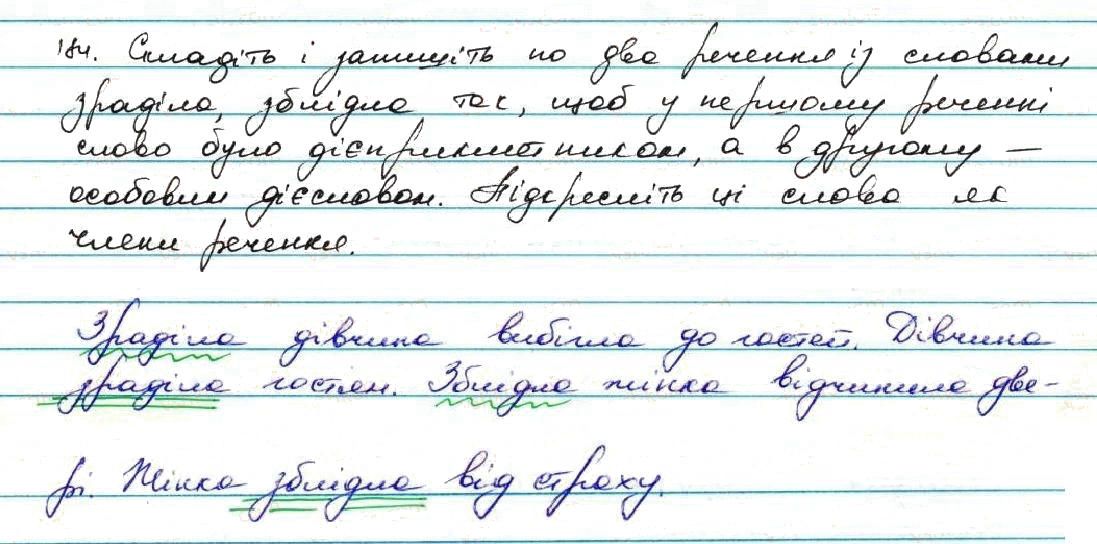 184. Складіть і запишіть по два речення із словами
зраділа, зблідла так, щоб у першому реченні
слово було дієприкметником, а в другому —
особовим дієсловом. Підкресліть ці слова як
члени речення.
Зраділа дівчина вибігла до гостей. Дівчина
зраділа гостям. Зблідла жінка відчинила две-
рі. Жінка зблідла від страху.